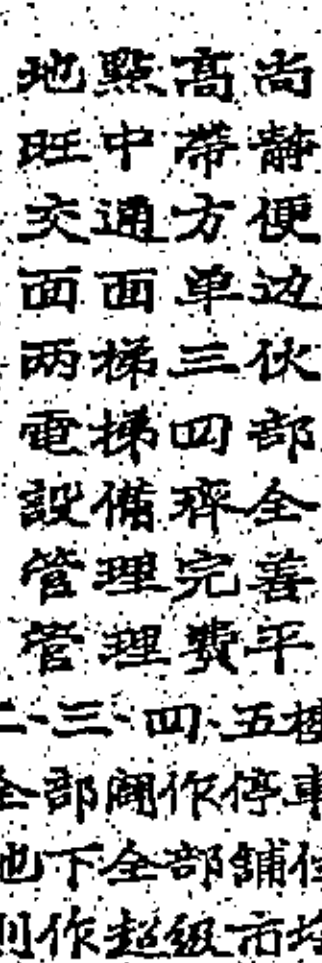 地點高尚
旺中帶靜
交通方便
面面单边
两梯三伙
電梯四部
設備齊全
管理完善
管理費平
二、三、四、五樓
全部闢作停車
地下全部舖位
則作超級市場